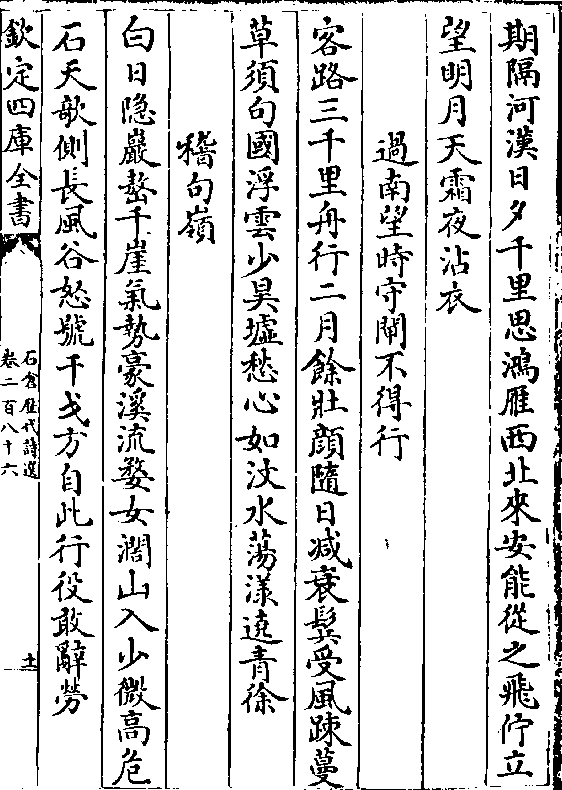 期隔河漢日夕千里思鴻雁西北來安能從之飛佇立
望明月天霜夜沾衣
過南望時守閘不得行
客路三千里舟行二月餘壯顔隨日减衰鬂受風疎蔓
草須句國浮雲少昊墟愁心如汶水蕩漾遶青徐
稽句嶺
白日隐巖嶅千崖氣勢豪溪流婺女濶山入少微高危
石天欹側長風谷怒號干戈方自此行役敢辭勞
欽定四庫全書
石倉歷代詩選
卷二百八十六
十一